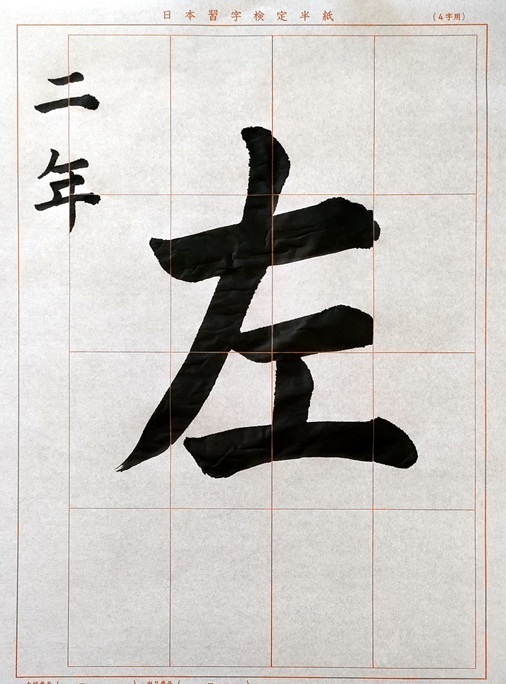 日本習字検定半紙
(4字用)
左
二年